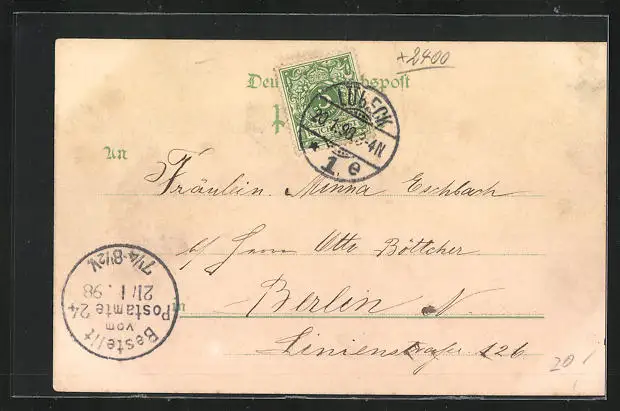 +2400
Deu spost
5
LÜBECK
20.1.98 3-4N
* 1. e
An
Fräulein Minna Eschbach
b/ Herrn Otto Böttcher
in Berlin N.
Linienstraße 126
Bestellt
vom
Postamte 24
21/1.98
7¼-8½V.
20